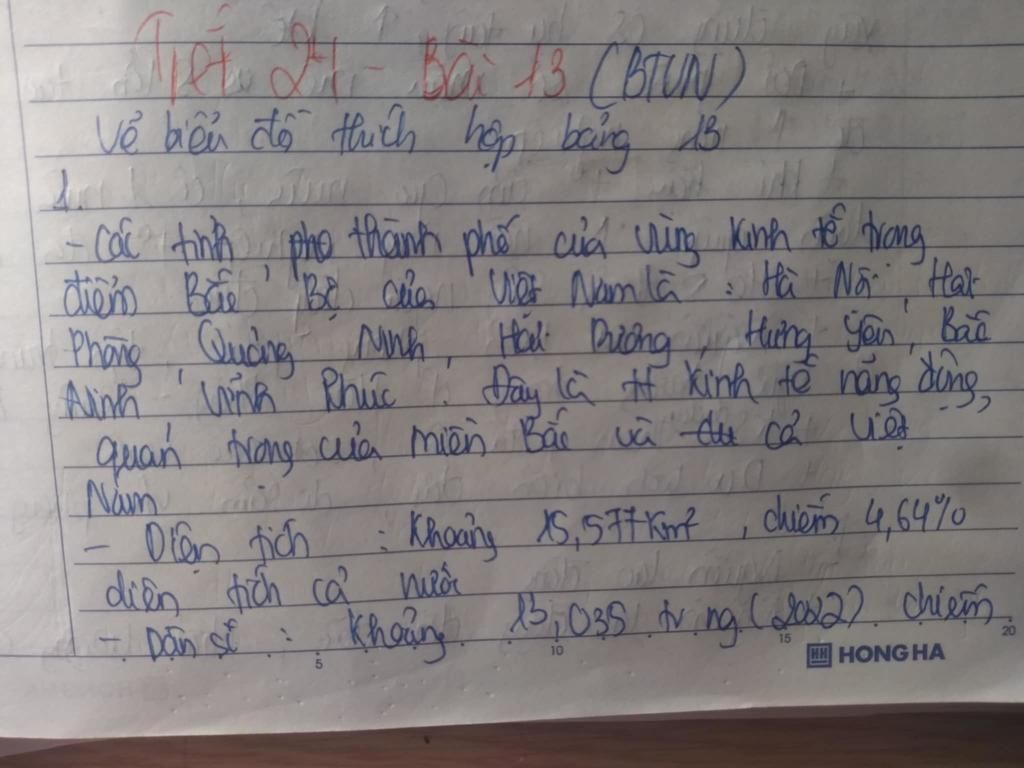 Tiết 24 - Bài 13 (BTVN)
Vẽ biểu đồ thích hợp bảng 13
1.
- Các tỉnh, pho thành phố của vùng kinh tế trong
điểm Bắc Bộ của Việt Nam là : Hà Nội, Hải
Phòng, Quảng Ninh, Hải Dương, Hưng Yên, Bắc
Ninh, Vĩnh Phúc. Đây là tt kinh tế năng động,
quan trong của miền Bắc và cả Việt
Nam
- Diện tích : Khoảng 15,577 km², chiếm 4,64%
diện tích cả nước
- Dân số : Khoảng 13,035 tr ng (2022) chiếm
5 10 15 20
HH HONG HA